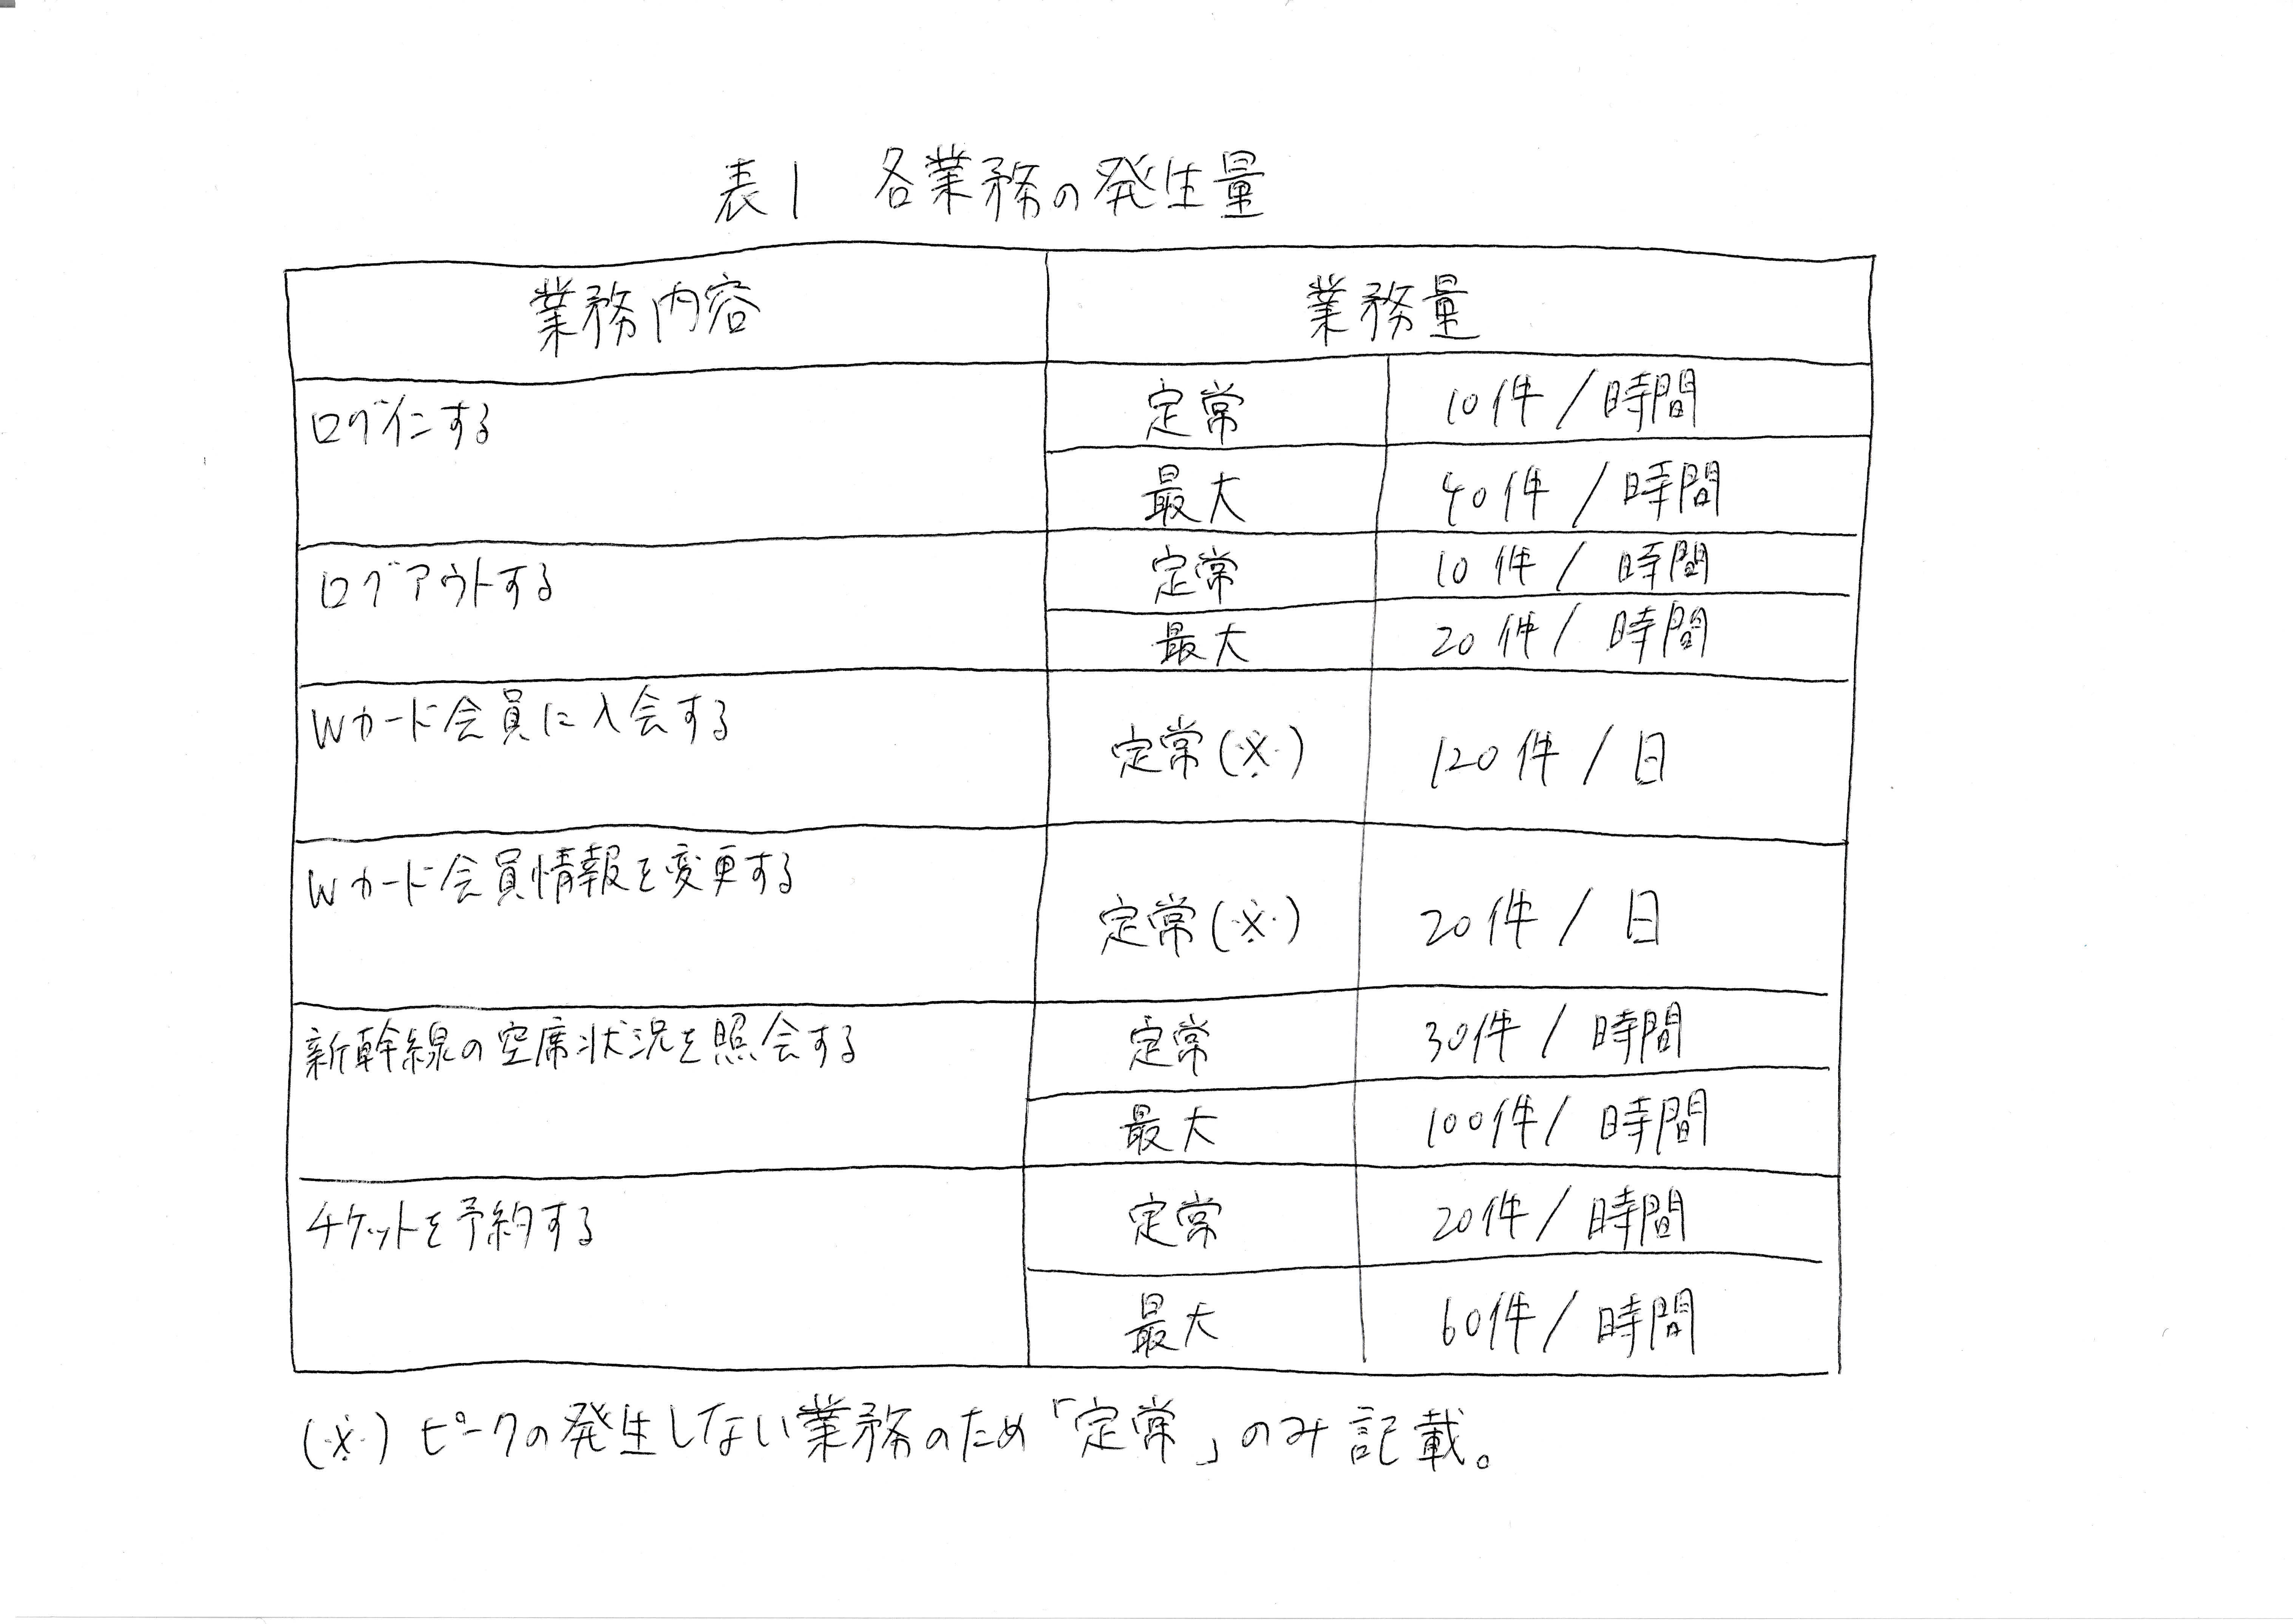 表1 各業務の発生量
業務内容 業務量
ログインする 定常 10件/時間
最大 40件/時間
ログアウトする 定常 10件/時間
最大 20件/時間
Wカード会員に入会する 定常(※) 120件/日
Wカード会員情報を変更する 定常(※) 20件/日
新幹線の空席状況を照会する 定常 30件/時間
最大 100件/時間
チケットを予約する 定常 20件/時間
最大 60件/時間
(※)ピークの発生しない業務のため「定常」のみ記載。